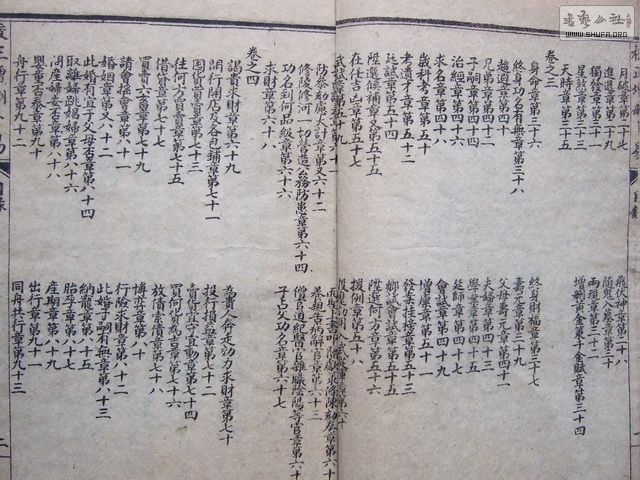 月破章第二十七
飛伏神章第二十八
進退章第二十九
隨鬼入墓章第三十
獨發章第三十一
兩現章第三十二
星煞章第三十三
增刪黃金策千金賦章第三十四
天時章第三十五
卷之三
身命章第三十六
終身財福章第三十七
終身功名有無章第三十八
壽元章第三十九
趨避章第四十
父母壽元章第四十一
兄弟章第四十二
夫婦章第四十三
子嗣章第四十四
學業章第四十五
治經章第四十六
延師章第四十七
求名章第四十八
歲科考章第五十
增廩章第五十一
考遺才章第五十二
發案掛榜章第五十三
廷試章第五十四
鄉試會試章第五十五
陞選候補章第五十六
陞選何方章第五十七
在任吉凶章第五十
援例章第五十八
武試章第
防參劾慮大計章第又六十二
章第六十三
修陵修河一切營造公務防患章第六十四
僧官道紀醫官雜職陰陽等官章第六十
功名到何品級章第六十六
子占父功名章第六十
求財章第六十八
卷之四
謁貴求財章第六十九
為貴人奔走効力求財章第七十
開行開店及各色鋪章第七十一
投行損益章第七十二
囤貨賣貨章第七十三
賣貨宜守宜動章第七十四
往何方買賣章第七十五
買何貨為吉章第七十六
借貸章第七十七
放債索債章第七十八
買賣六畜章第七十九
博奕章第八十
請會搖會章第八十一
行險求財章第八十二
婚姻章第又八十二
此婚子嗣有無章第八十三
此婚有宜于父母否章第八十四
納寵章第八十五
取離婦跳娼婦章第八十六
胎孕章第八十七
產婦安否章第八十八
產期章第八十九
嬰童否泰章第九十
出行章第九十一
舟行章第九十二
同舟共行章第九十三
目錄
二
WWW.SHUFA.ORG